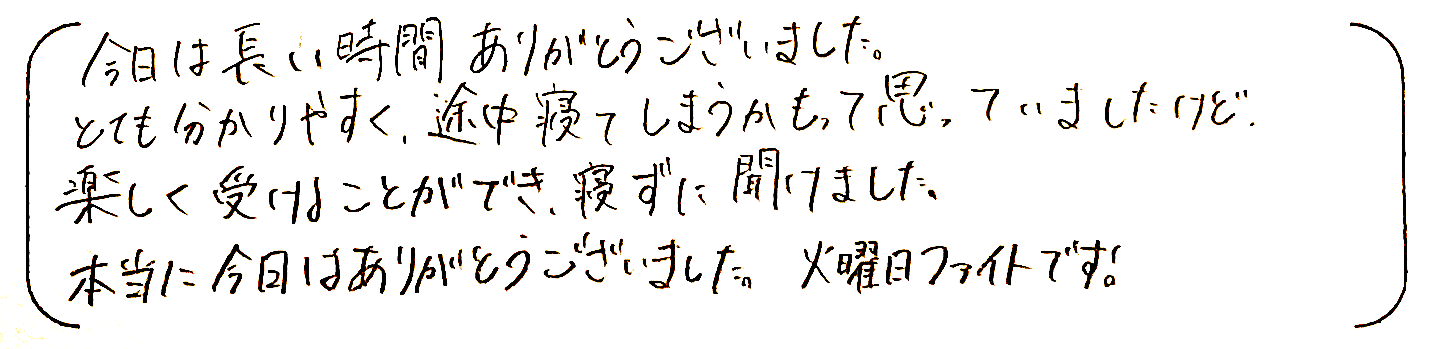 今日は長い時間ありがとうございました。
とても分かりやすく、途中寝てしまうかもって思っていましたけど、
楽しく受けることができ、寝ずに聞けました。
本当に今日はありがとうございました。火曜日ファイトです!